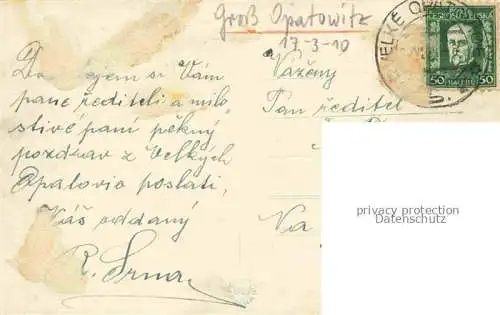 Groß Opatowitz
17-3-10
VELKÉ OPA
ČESKOSLOVENSKO
50 HALÉŘŮ 50
Vážený
Pan ředitel
Na
Dovolujem si Vám
pane řediteli a milo
stivé paní pěkný
pozdrav z Velkých
Opatovic poslati,
Váš oddaný
R. Srna
privacy protection
Datenschutz